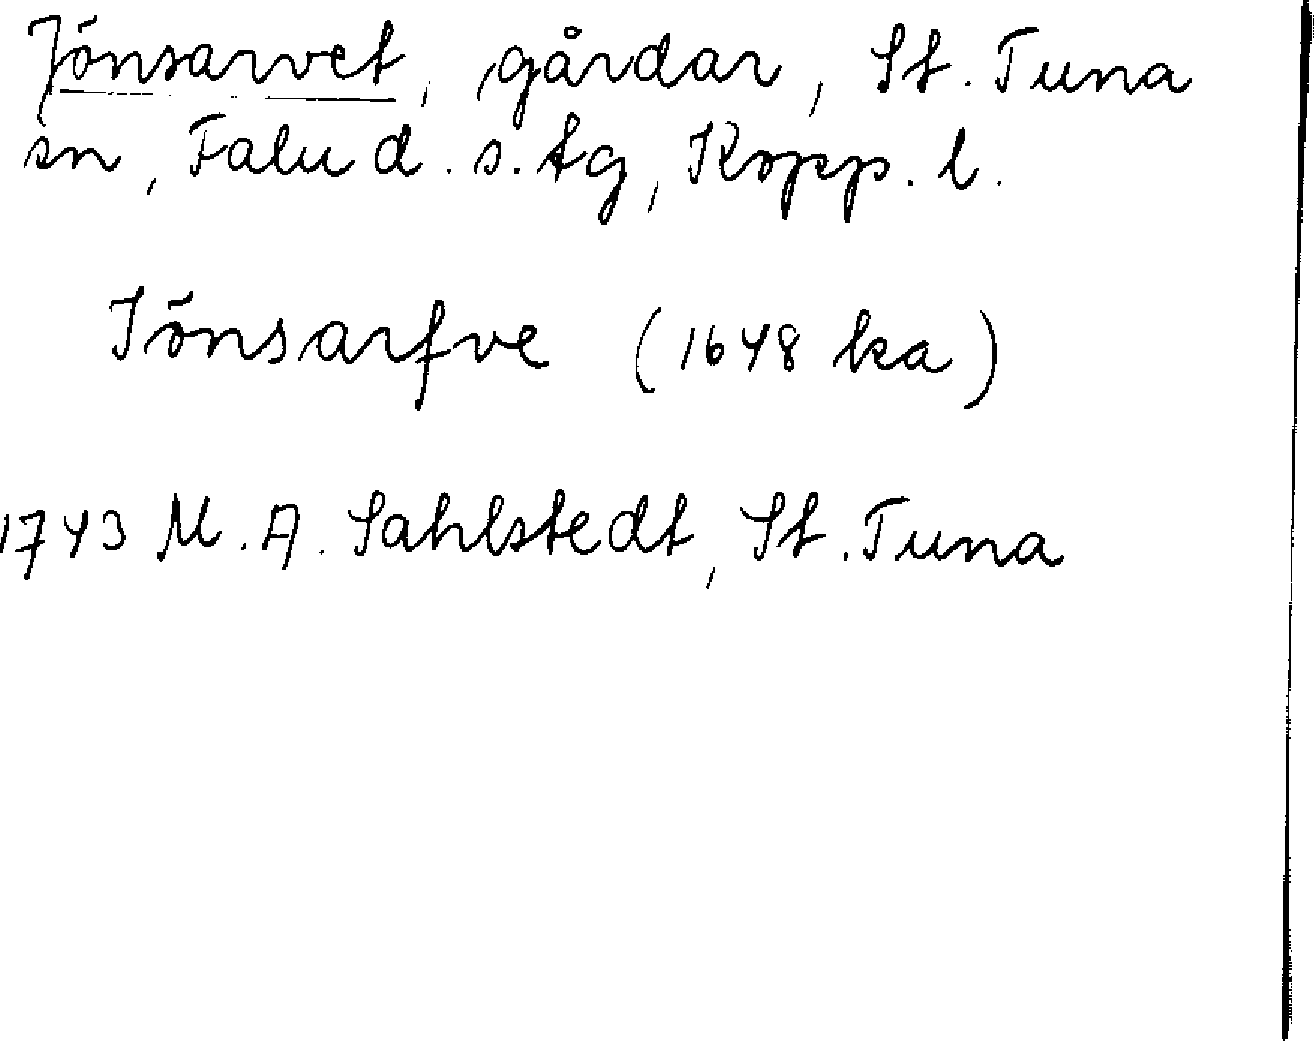 Jönsarvet, gårdar, St. Tuna
sn, Falu d. s. tg, Kopp. l.
Jönsarfve (1648 ka)
1743 M. A. Sahlstedt, St. Tuna